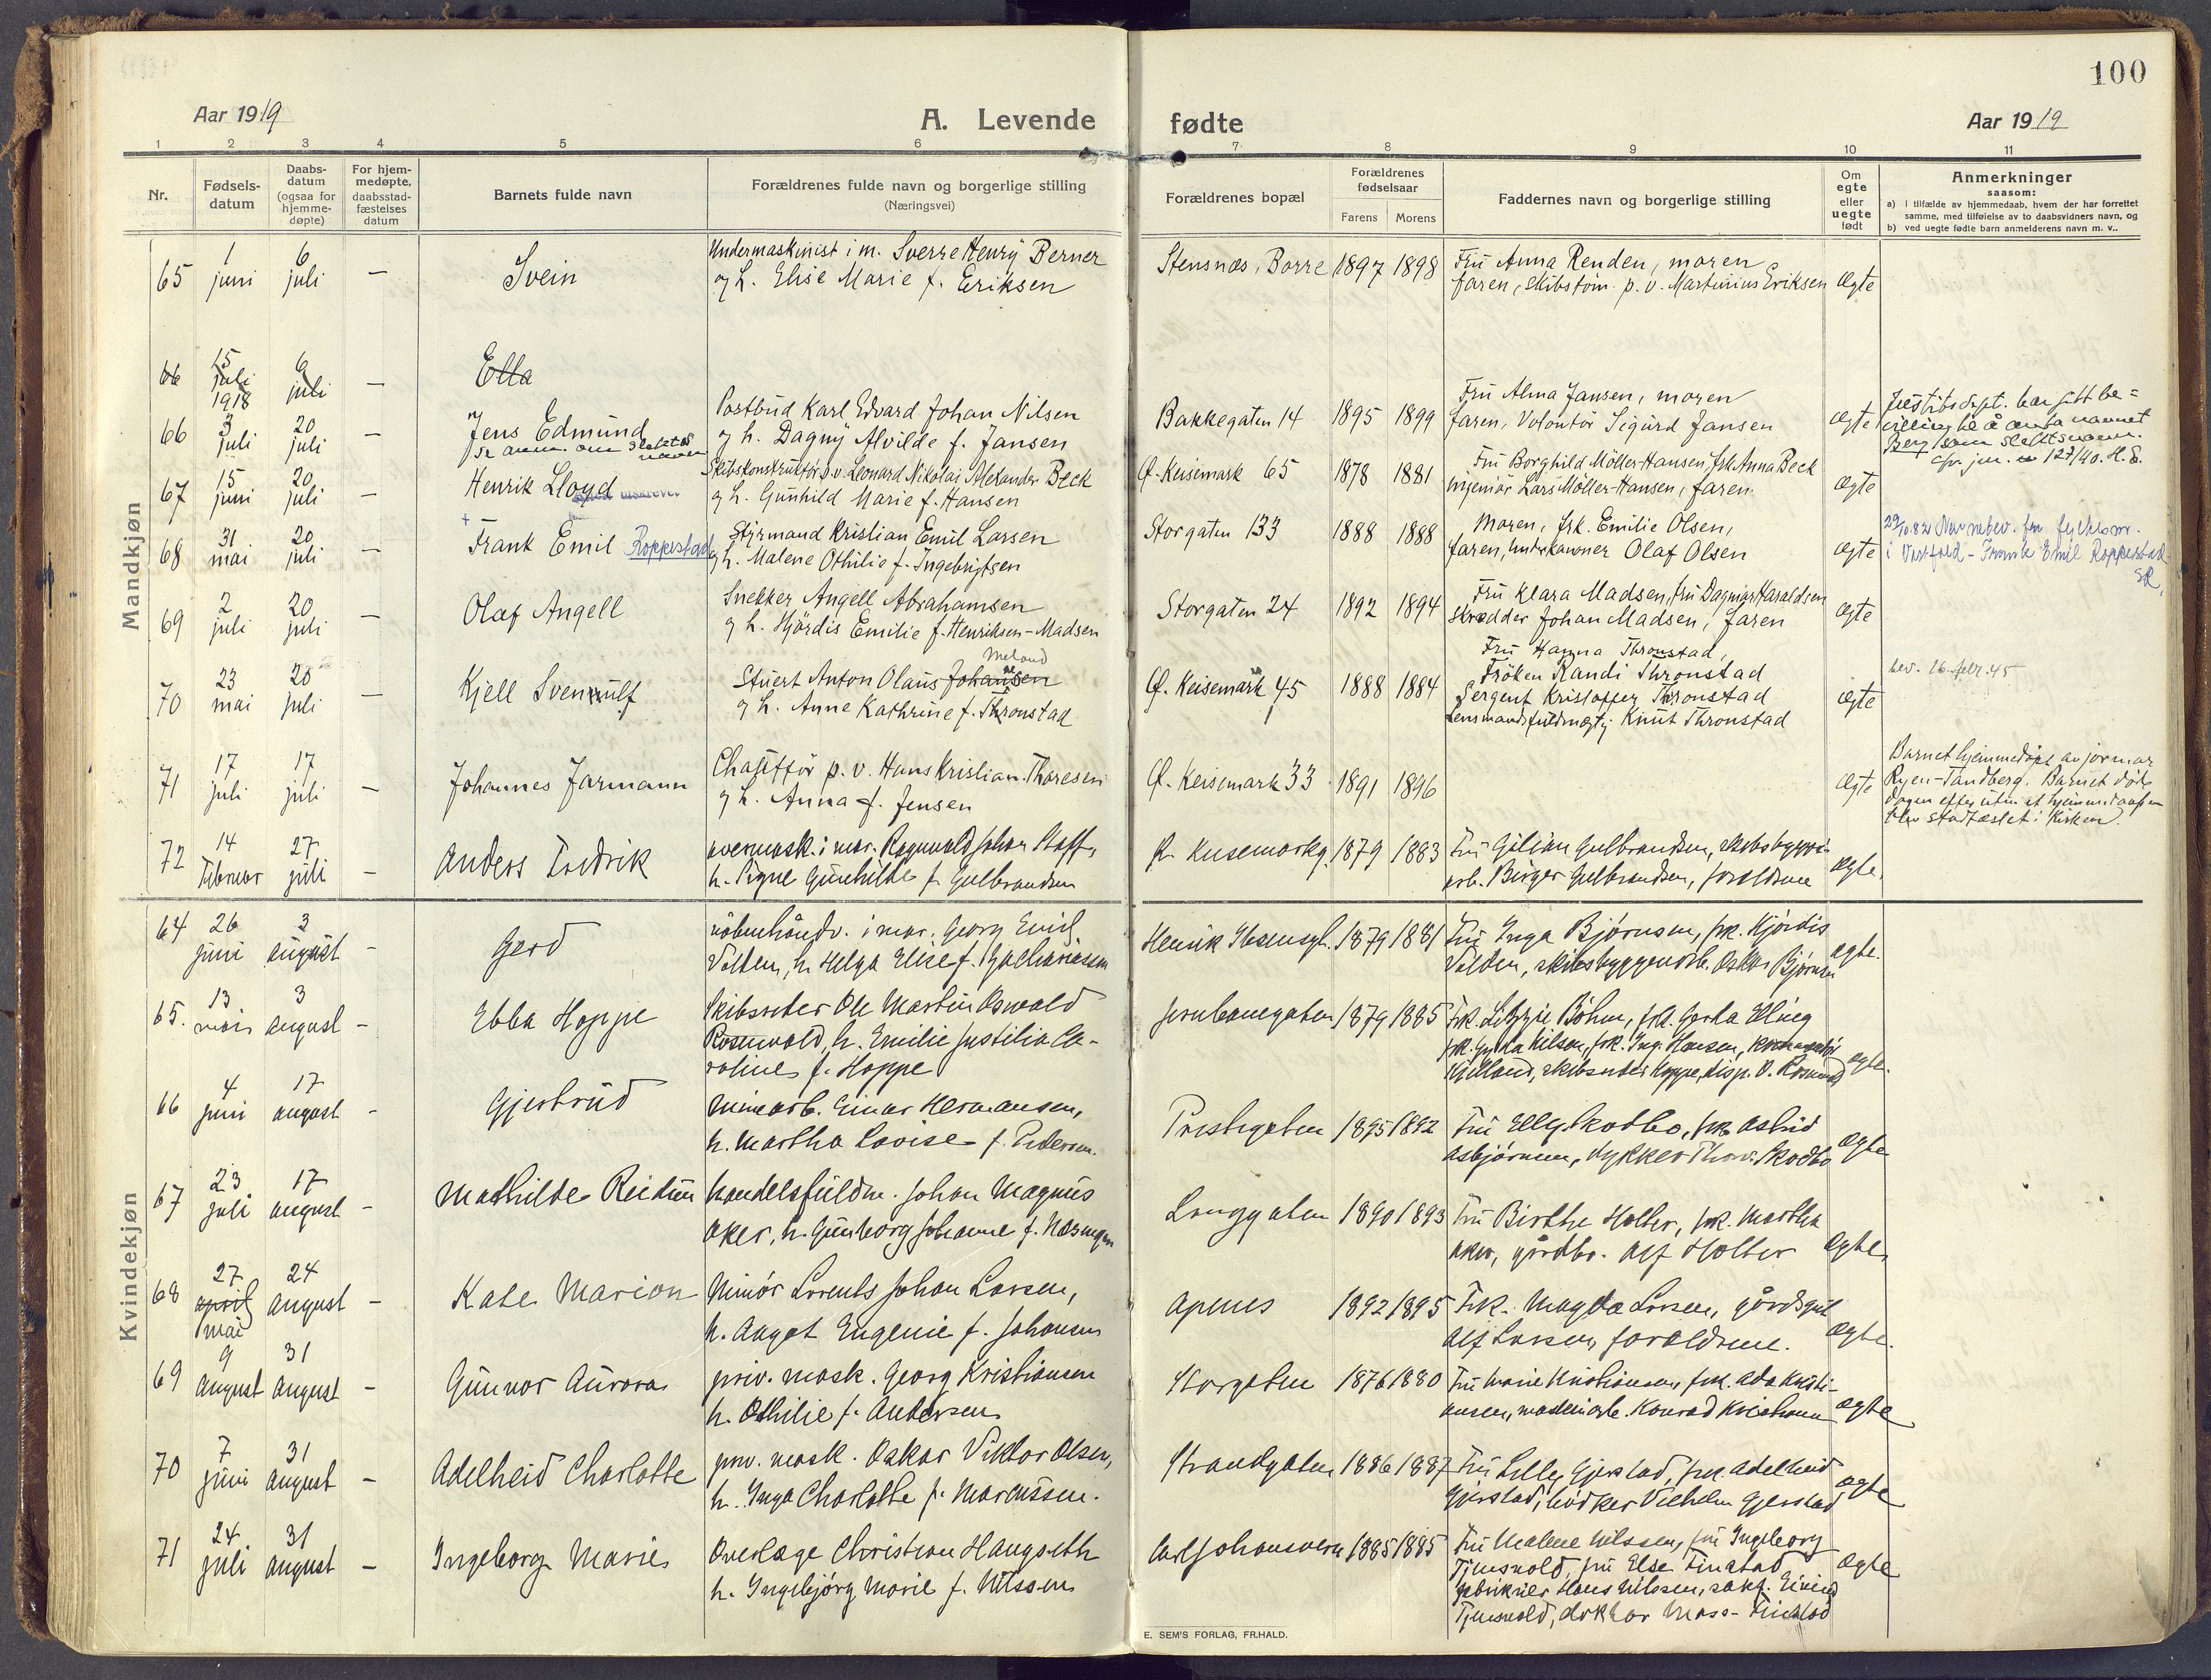 100
Aar 1919
A. Levende fødte
Aar 1919
1 2 3 4 5 6 7 8 9 10 11
Nr.
Fødsels-datum
Daabs-datum (ogsaa for hjemme-døpte)
For hjem-medøpte, daabsstad-fæstelses datum
Barnets fulde navn
Forældrenes fulde navn og borgerlige stilling
(Næringsvei)
Forældrenes bopæl
Forældrenes fødselsaar
Farens Morens
Faddernes navn og borgerlige stilling
Om egte eller uegte født
Anmerkninger
saasom:
a) i tilfælde av hjemmedaab, hvem der har forrettet samme, med tilføielse av to daabsvidners navn, og
b) ved uegte fødte barn anmelderens navn m. v..
Mandkjøn
65 1 juni 6 juli — Svein
Undermaskinist i m. Sverre Henry Berner
og h. Elise Marie f. Eriksen
Stensnæs, Borre 1897 1898
Fru Anna Renden, moren
faren, skibstøm. p. v. Martinius Eriksen
ægte
66 15 juli 1918 6 juli — Ella
66 3 juli 20 juli — Jens Edmund
se anm. om slektsnavn
Postbud Karl Edvard Johan Nilsen
og h. Dagny Alvilde f. Jansen
Bakkegaten 14 1895 1899
Fru Alma Jansen, moren
faren, Volontør Sigurd Jansen
ægte
Justitsdept. har gitt be=
villing til å anta navnet
Berg som slektsnavn.
cfr. jnr. 127/40. H.S.
67 15 juni 20 juli — Henrik Lloyd
Skibskonstruktør p. v. Leonard Nikolai Alexander Beck
og h. Gunhild Marie f. Hansen
Ø. Keisemark 65 1878 1881
Fru Borghild Möller-Hansen, frk. Anna Beck
ingeniør Lars Möller-Hansen, faren.
ægte
68 31 mai 20 juli — Frank Emil Roppestad
Styrmand Kristian Emil Larsen
og h. Malene Othilie f. Ingebrigtsen
Storgaten 133 1888 1888
Moren, frk. Emilie Olsen,
faren, underkanoner Olaf Olsen
ægte
29/10.82 Navnebev. fra fylkesm.
i Vestfold - Frank Emil Roppestad
SR.
69 2 juli 20 juli — Olaf Angell
Snekker Angell Abrahamsen
og h. Hjördis Emilie f. Henriksen-Madsen
Storgaten 24 1892 1894
Fru Klara Madsen, fru Dagmar Haraldsen
Skrædder Johan Madsen, faren
ægte
70 23 mai 20 juli — Kjell Svennulf
Meland
Stuert Anton Olaus Johansen
og h. Anne Kathrine f. Thronstad
Ø. Keisemark 45 1888 1884
Fru Hanna Thronstad,
Fröken Randi Thronstad
Sergent Kristoffer Thronstad
Lensmandsfuldmægtig Knut Thronstad
ægte
bev. 16 febr. 45
71 17 juli 17 juli — Johannes Jarmann
Chauffør p. v. Hans Kristian Thoresen
og h. Anna f. Jensen
Ø. Keisemark 33 1891 1896
ægte
Barnet hjemmedøpt av jormor
Ryen-Tandberg. Barnet døde
dagen efter uten at hjemmedaapen
blev stadfæstet i kirken.
72 14 februar 27 juli — Anders Fredrik
overmask. i mar. Ragnvald Johan Staff,
h. Signe Gunhilde f. Gulbrandsen
1879 1883
Fru Gilian Gulbrandsen, skibsbyggeri-
arb. Birger Gulbrandsen, forældrene
ægte.
Kvindekjøn
64 26 juni 3 august — Gerd
våbenhåndv. i mar. Georg Emil
Volden, h. Helga Elise f. Zachariassen
Henrik Ibsensgt. 1879 1881
Fru Inga Bjørnsen, frk. Hjørdis
Volden, skibsbyggeriarb. Oskar Bjørnsen
ægte.
65. 13 mars 3 august — Ebba Hoppe
Skibsreder Ole Martin Oswald
Rosenvold, h. Emilie Justilia Ca-
roline f. Hoppe
Jernbanegaten 1879 1885
Frk. Lizzie Böhm, frk. Gerda Elling
frk. Gydda Nilsen, frk. Ing. Hansen,
Kielland, skibsreder Hoppe, disp. O. Rosenvold
ægte.
66 4 juni 17 august — Gjertrud
Minearb. Einar Hermansen,
h. Martha Lovise f. Pedersen.
Prestegaten 1895 1892
Fru Elly Skodbo, frk. Astrid
Asbjørnsen, dykker Thorv. Skodbo
ægte
67 23 juli 17 august — Mathilde Reidun
handelsfuldm. Johan Magnus
Aker, h. Gunborg Johanne f. Næsmyhr
Langgaten 1890 1893
Fru Birthe Holter, frk. Martha
Aker, gårdbr. Alf Holter
ægte.
68 27 april mai 24 august — Kate Marion
Minör Lorents Johan Larsen,
h. Aagot Eugenie f. Johansen
Apenes 1892 1895
Frk. Magda Larsen, gårdsgut
Alf Larsen, forældrene.
ægte.
69 9 august 31 august — Gunvor Aurora
priv. mask. Georg Kristiansen
h. Othilie f. Andersen
Storgaten 1876 1880
Fru Marie Kristiansen, frk. Ada Kristi-
ansen, maskinarb. Konrad Kristiansen
ægte
70 7 juni 31 august — Adelheid Charlotte
priv. mask. Oskar Viktor Olsen,
h. Inga Charlotte f. Marcussen.
Strandgaten 1886 1887
Fru Lilly Gjerstad, frk. Adelheid
Gjerstad, bödker Vilhelm Gjerstad
ægte
71 24 juli 31 august — Ingeborg Marie
Overlæge Christian Haugseth
h. Ingebjörg Marie f. Nilssen
Carl Johansvern 1885 1885
Fru Malene Nilssen, fru Ingeborg
Tjensvold, fru Else Finstad
fabrikeier Hans Nilssen, sakf. Eivind
Tjensvold, doktor Moss-Finstad
ægte
E. SEM'S FORLAG, FR.HALD.